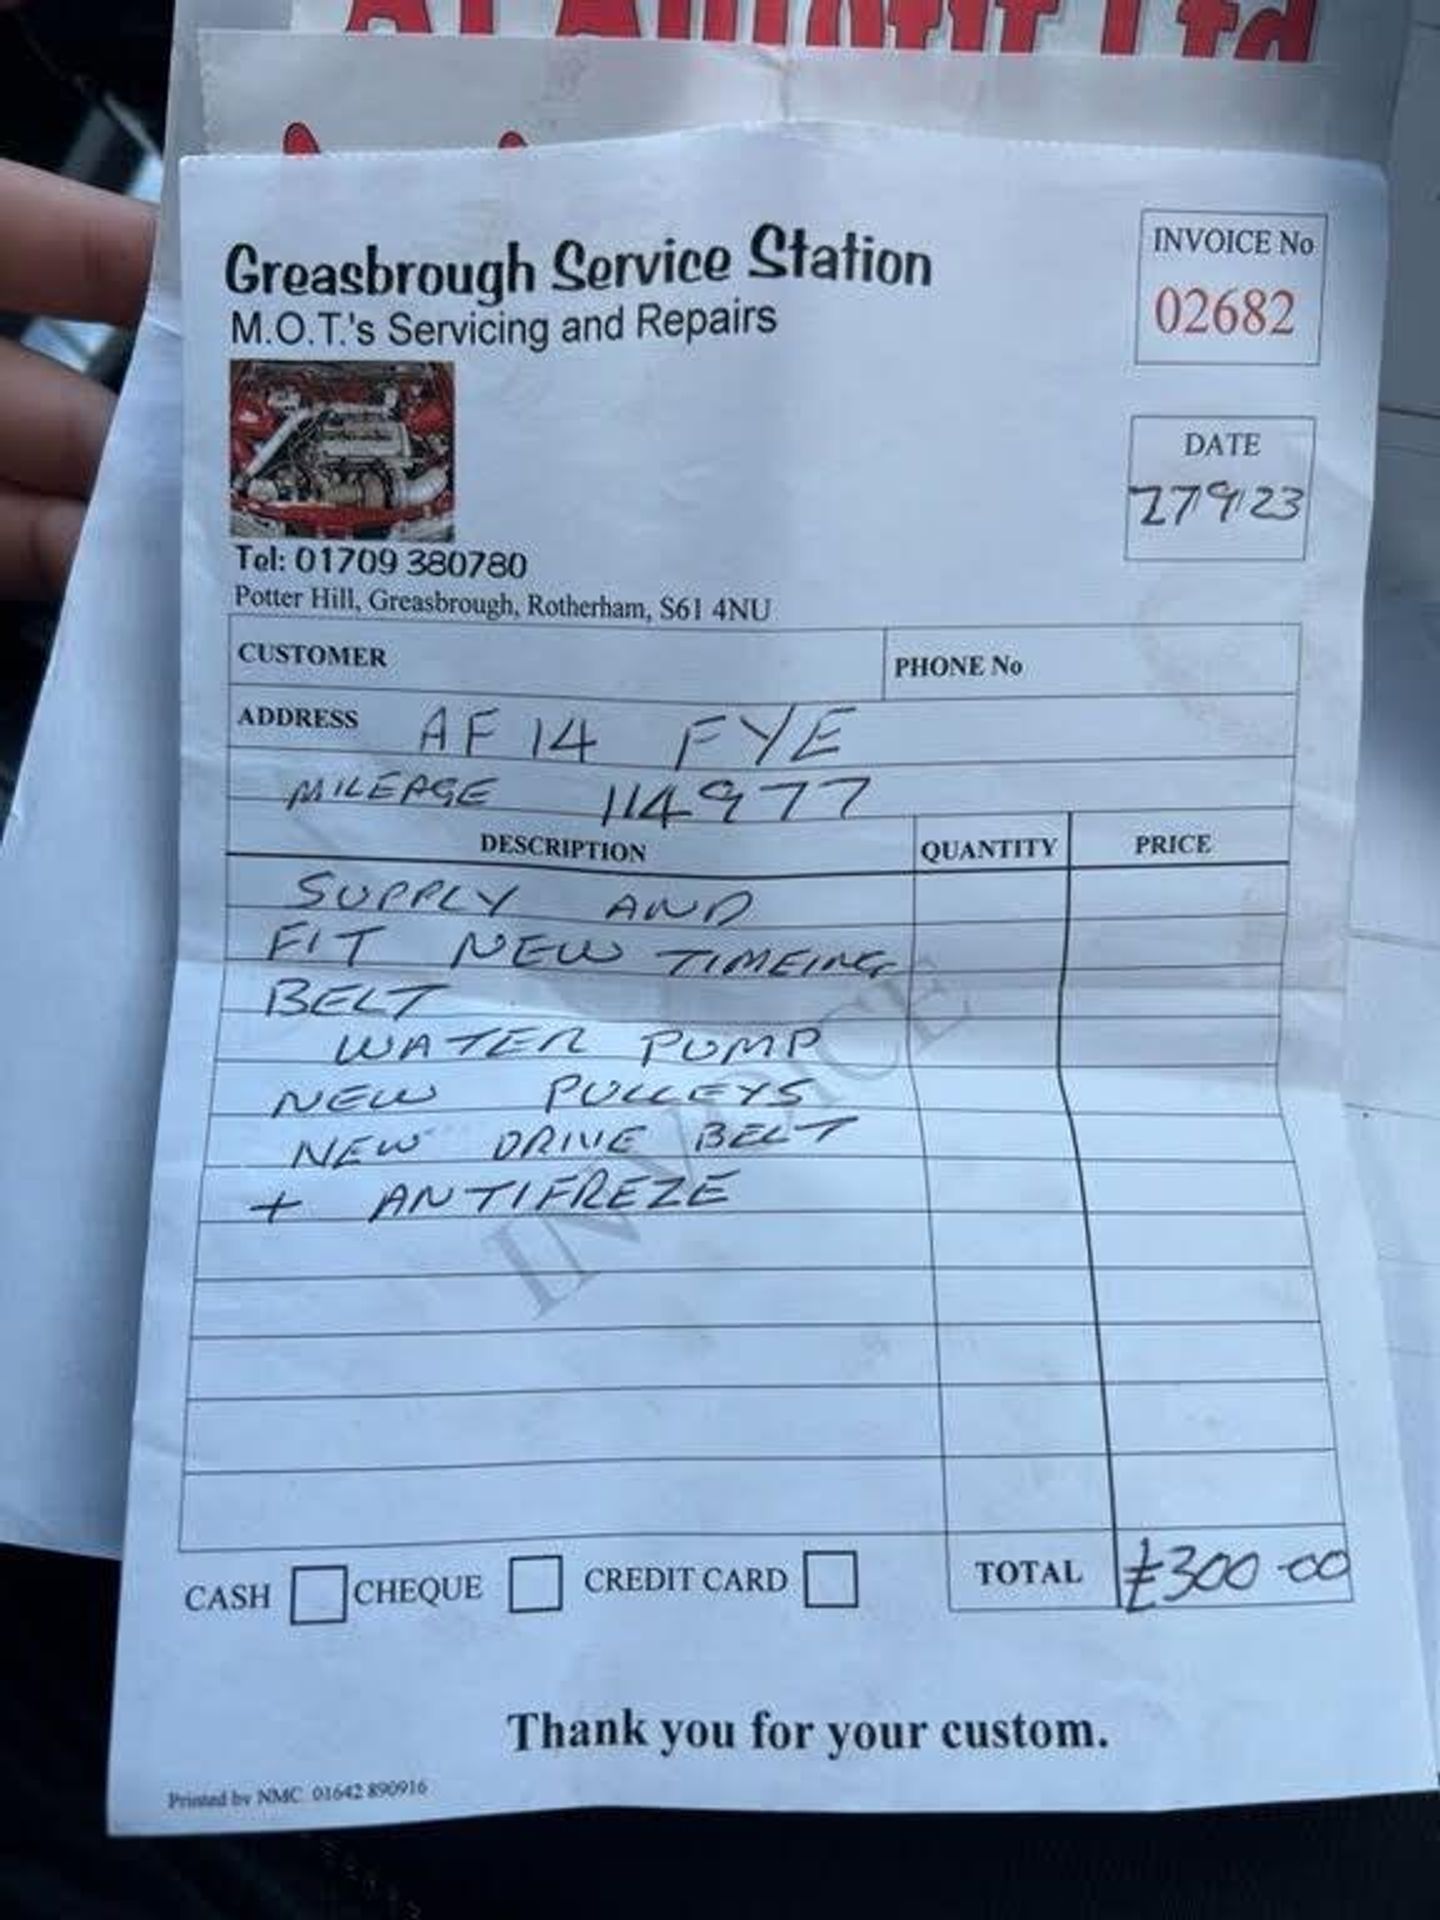 Greasbrough Service Station
M.O.T.'s Servicing and Repairs
INVOICE No
02682
DATE
27/9/23
Tel: 01709 380780
Potter Hill, Greasbrough, Rotherham, S61 4NU
CUSTOMER
PHONE No
ADDRESS AF14 FYE
MILEAGE 114977
DESCRIPTION QUANTITY PRICE
SUPPLY AND
FIT NEW TIMEING
BELT
WATER PUMP
NEW PULLEYS
NEW DRIVE BELT
+ ANTIFREZE
INVOICE
CASH CHEQUE CREDIT CARD TOTAL £300-00
Thank you for your custom.
Printed by NMC 01642 890916